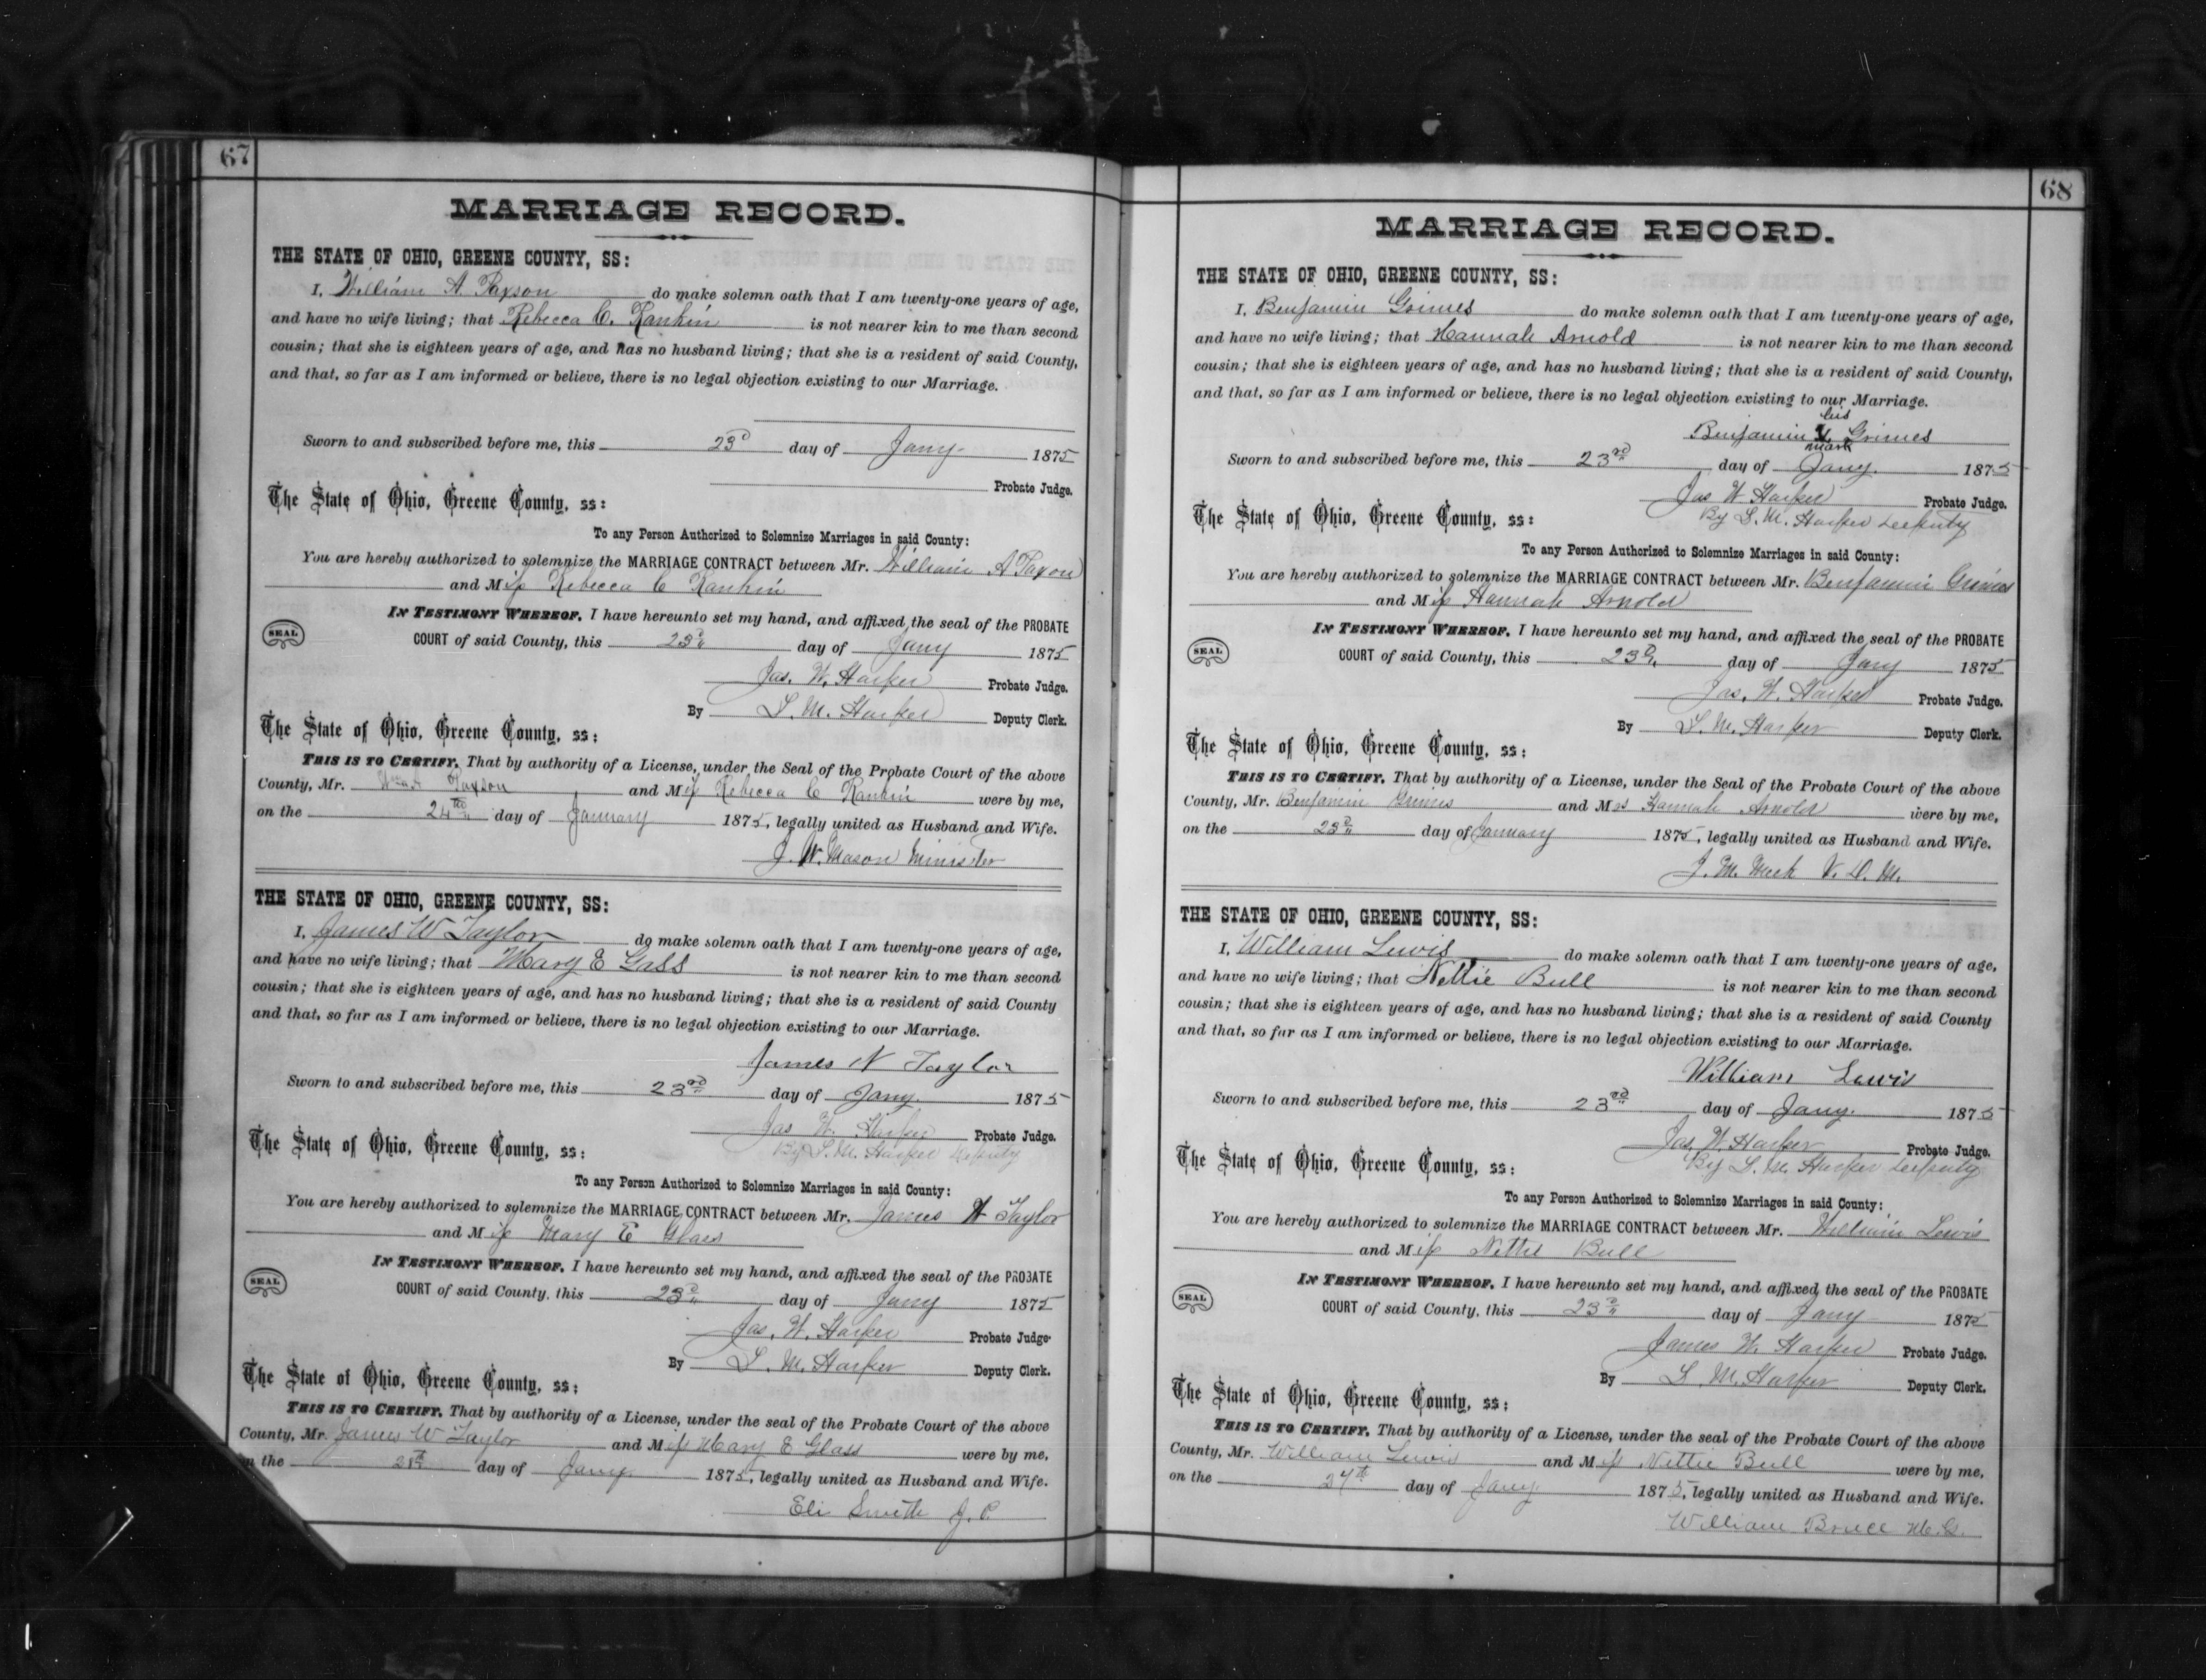 67
MARRIAGE RECORD.
THE STATE OF OHIO, GREENE COUNTY, SS:
I, William A. Paxson do make solemn oath that I am twenty-one years of age,
and have no wife living; that Rebecca C. Rankin is not nearer kin to me than second
cousin; that she is eighteen years of age, and has no husband living; that she is a resident of said County,
and that, so far as I am informed or believe, there is no legal objection existing to our Marriage.
Sworn to and subscribed before me, this 23d day of Jany. 1875
Probate Judge.
The State of Ohio, Greene County, ss:
To any Person Authorized to Solemnize Marriages in said County:
You are hereby authorized to solemnize the MARRIAGE CONTRACT between Mr. William A Paxon
and Miss Rebecca C Rankin
IN TESTIMONY WHEREOF, I have hereunto set my hand, and affixed the seal of the PROBATE
SEAL COURT of said County, this 23d day of Jany 1875
Jas. W. Harper Probate Judge.
By S. M. Harper Deputy Clerk.
The State of Ohio, Greene County, ss:
THIS IS TO CERTIFY, That by authority of a License, under the Seal of the Probate Court of the above
County, Mr. Wm A Paxson and Miss Rebecca C Rankin were by me,
on the 24th day of January 1875, legally united as Husband and Wife.
J. W. Mason Minister
THE STATE OF OHIO, GREENE COUNTY, SS:
I, James W Taylor do make solemn oath that I am twenty-one years of age,
and have no wife living; that Mary E Gass is not nearer kin to me than second
cousin; that she is eighteen years of age, and has no husband living; that she is a resident of said County
and that, so far as I am informed or believe, there is no legal objection existing to our Marriage.
James N Taylor
Sworn to and subscribed before me, this 23rd day of Jany. 1875
Jas W. Harper Probate Judge.
By S. M. Harper Deputy
The State of Ohio, Greene County, ss:
To any Person Authorized to Solemnize Marriages in said County:
You are hereby authorized to solemnize the MARRIAGE CONTRACT between Mr. James W Taylor
and Miss Mary E Glass
IN TESTIMONY WHEREOF, I have hereunto set my hand, and affixed the seal of the PROBATE
SEAL COURT of said County, this 23d day of Jany 1875
Jas. W. Harper Probate Judge.
By S. M. Harper Deputy Clerk.
The State of Ohio, Greene County, ss:
THIS IS TO CERTIFY, That by authority of a License, under the seal of the Probate Court of the above
County, Mr. James W Taylor and Miss Mary E Glass were by me,
on the day of Jany. 1875, legally united as Husband and Wife.
Eli Smith J. P.
68
MARRIAGE RECORD.
THE STATE OF OHIO, GREENE COUNTY, SS:
I, Benjamin Grimes do make solemn oath that I am twenty-one years of age,
and have no wife living; that Hannah Arnold is not nearer kin to me than second
cousin; that she is eighteen years of age, and has no husband living; that she is a resident of said County,
and that, so far as I am informed or believe, there is no legal objection existing to our Marriage.
his
Benjamin X Grimes
mark
Sworn to and subscribed before me, this 23rd day of Jany. 1875
Jas W Harper Probate Judge.
By S. M. Harper Deputy
The State of Ohio, Greene County, ss:
To any Person Authorized to Solemnize Marriages in said County:
You are hereby authorized to solemnize the MARRIAGE CONTRACT between Mr. Benjamin Grimes
and Miss Hannah Arnold
IN TESTIMONY WHEREOF, I have hereunto set my hand, and affixed the seal of the PROBATE
SEAL COURT of said County, this 23d day of Jany 1875
Jas. W. Harper Probate Judge.
By S. M. Harper Deputy Clerk.
The State of Ohio, Greene County, ss:
THIS IS TO CERTIFY, That by authority of a License, under the Seal of the Probate Court of the above
County, Mr. Benjamin Grimes and Mrs Hannah Arnold were by me,
on the 23d day of January 1875, legally united as Husband and Wife.
J. M. Meek V. D. M.
THE STATE OF OHIO, GREENE COUNTY, SS:
I, William Lewis do make solemn oath that I am twenty-one years of age,
and have no wife living; that Nettie Bull is not nearer kin to me than second
cousin; that she is eighteen years of age, and has no husband living; that she is a resident of said County
and that, so far as I am informed or believe, there is no legal objection existing to our Marriage.
William Lewis
Sworn to and subscribed before me, this 23rd day of Jany. 1875
Jas. W. Harper Probate Judge.
By S. M. Harper Deputy
The State of Ohio, Greene County, ss:
To any Person Authorized to Solemnize Marriages in said County:
You are hereby authorized to solemnize the MARRIAGE CONTRACT between Mr. William Lewis
and Miss Nettie Bull
IN TESTIMONY WHEREOF, I have hereunto set my hand, and affixed the seal of the PROBATE
SEAL COURT of said County, this 23d day of Jany 1875
James W. Harper Probate Judge.
By S. M. Harper Deputy Clerk.
The State of Ohio, Greene County, ss:
THIS IS TO CERTIFY, That by authority of a License, under the seal of the Probate Court of the above
County, Mr. William Lewis and Miss Nettie Bull were by me,
on the 24th day of Jany. 1875, legally united as Husband and Wife.
William Bruce M. G.